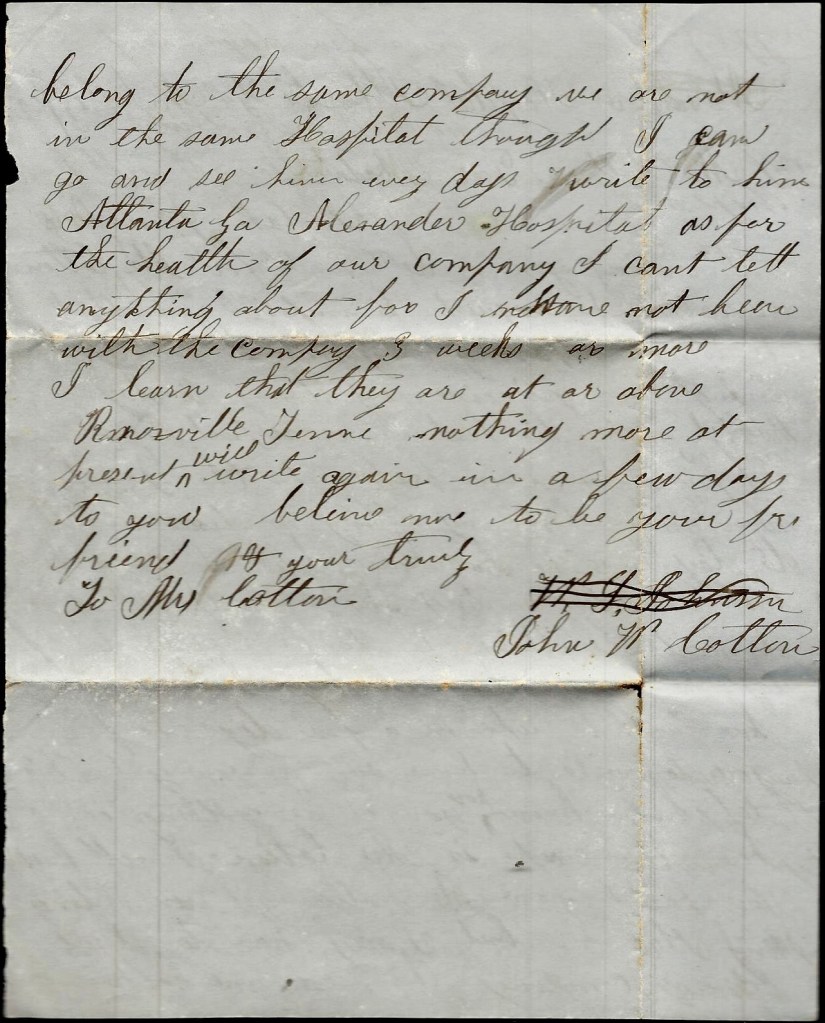 belong to the same company we are not
in the same Hospital though I can
go and see him evey days write to him
Atlanta Ga Alexander Hospital as for
the health of our company I cant tell
anything about for I have not been
with the compay 3 weeks or more
I learn that they are at or above
Knoxville Tenne nothing more at
present ^ will write again in a few days
to you beleive me to be your fri
friend your truly
To Mrs Cotton W. T. Johnson
John W Cotton